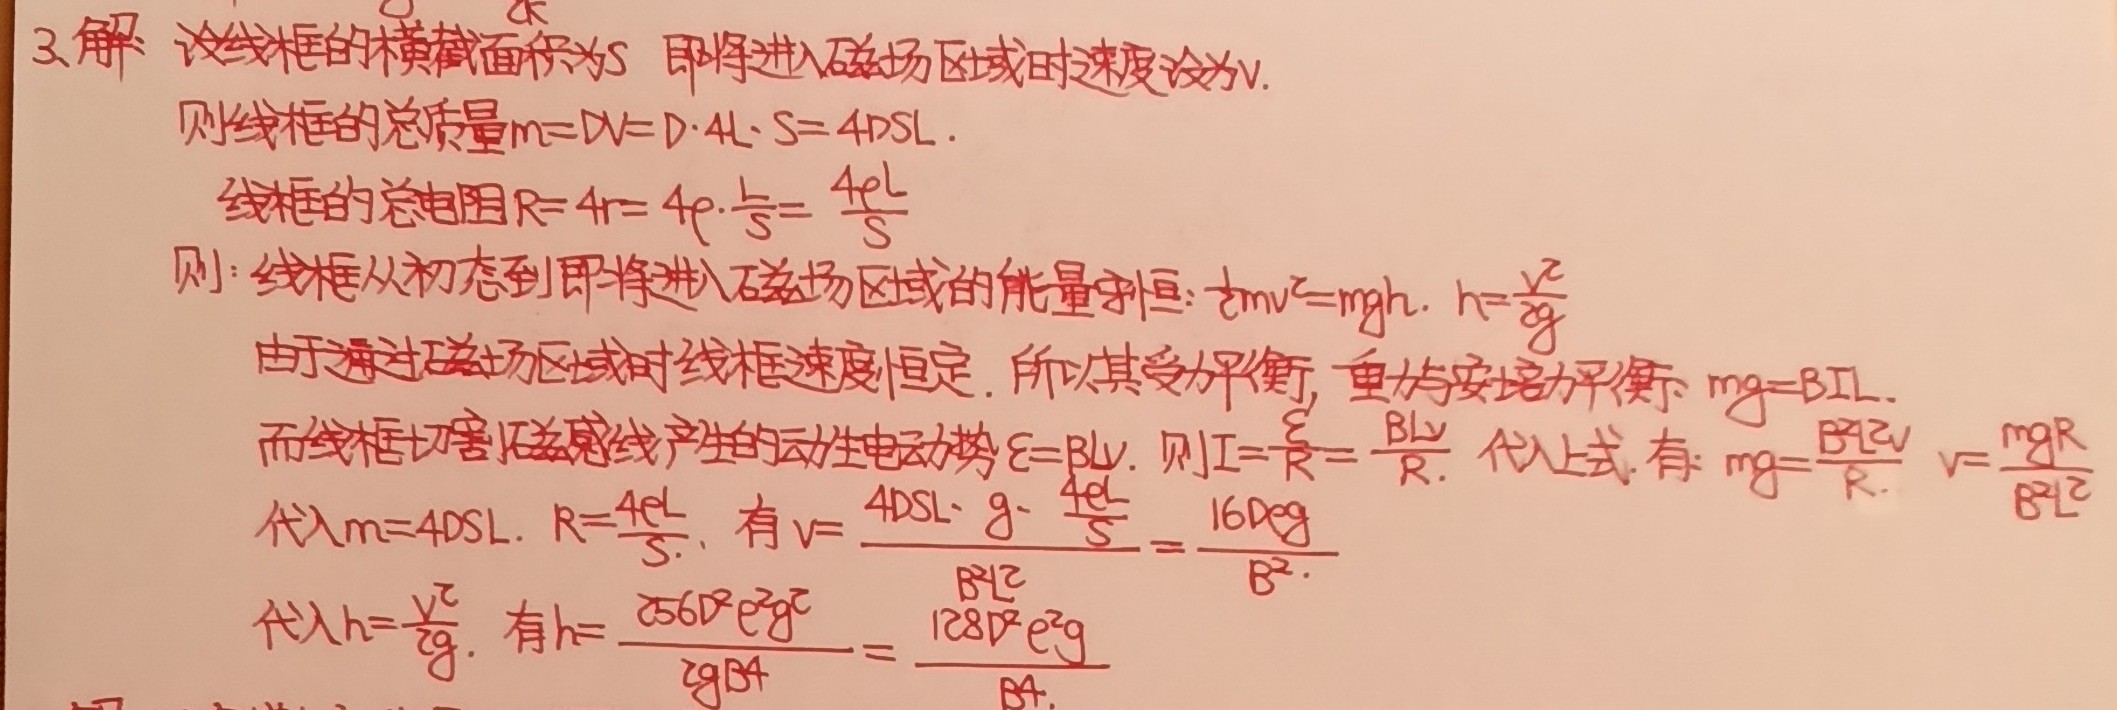 2K
3、解: 设线框的横截面积为S 即将进入磁场区域时速度设为V.
则线框的总质量m=DV=D·4L·S=4DSL.
线框的总电阻R=4r=4ρ·L/S=4ρL/S
则: 线框从初态到即将进入磁场区域的能量守恒: ½mv²=mgh. h=v²/2g
由于通过磁场区域时线框速度恒定. 所以其受力平衡, 重力与安培力平衡: mg=BIL.
而线框切割磁感线产生的动生电动势ε=BLv. 则I=ε/R=BLv/R. 代入上式. 有: mg=B²L²v/R. v=mgR/B²L²
代入m=4DSL. R=4ρL/S. 有v=4DSL·g·4ρL/S/B²L²=16Dρg/B².
代入h=v²/2g. 有h=256D²ρ²g²/2gB4=128D²ρ²g/B4.